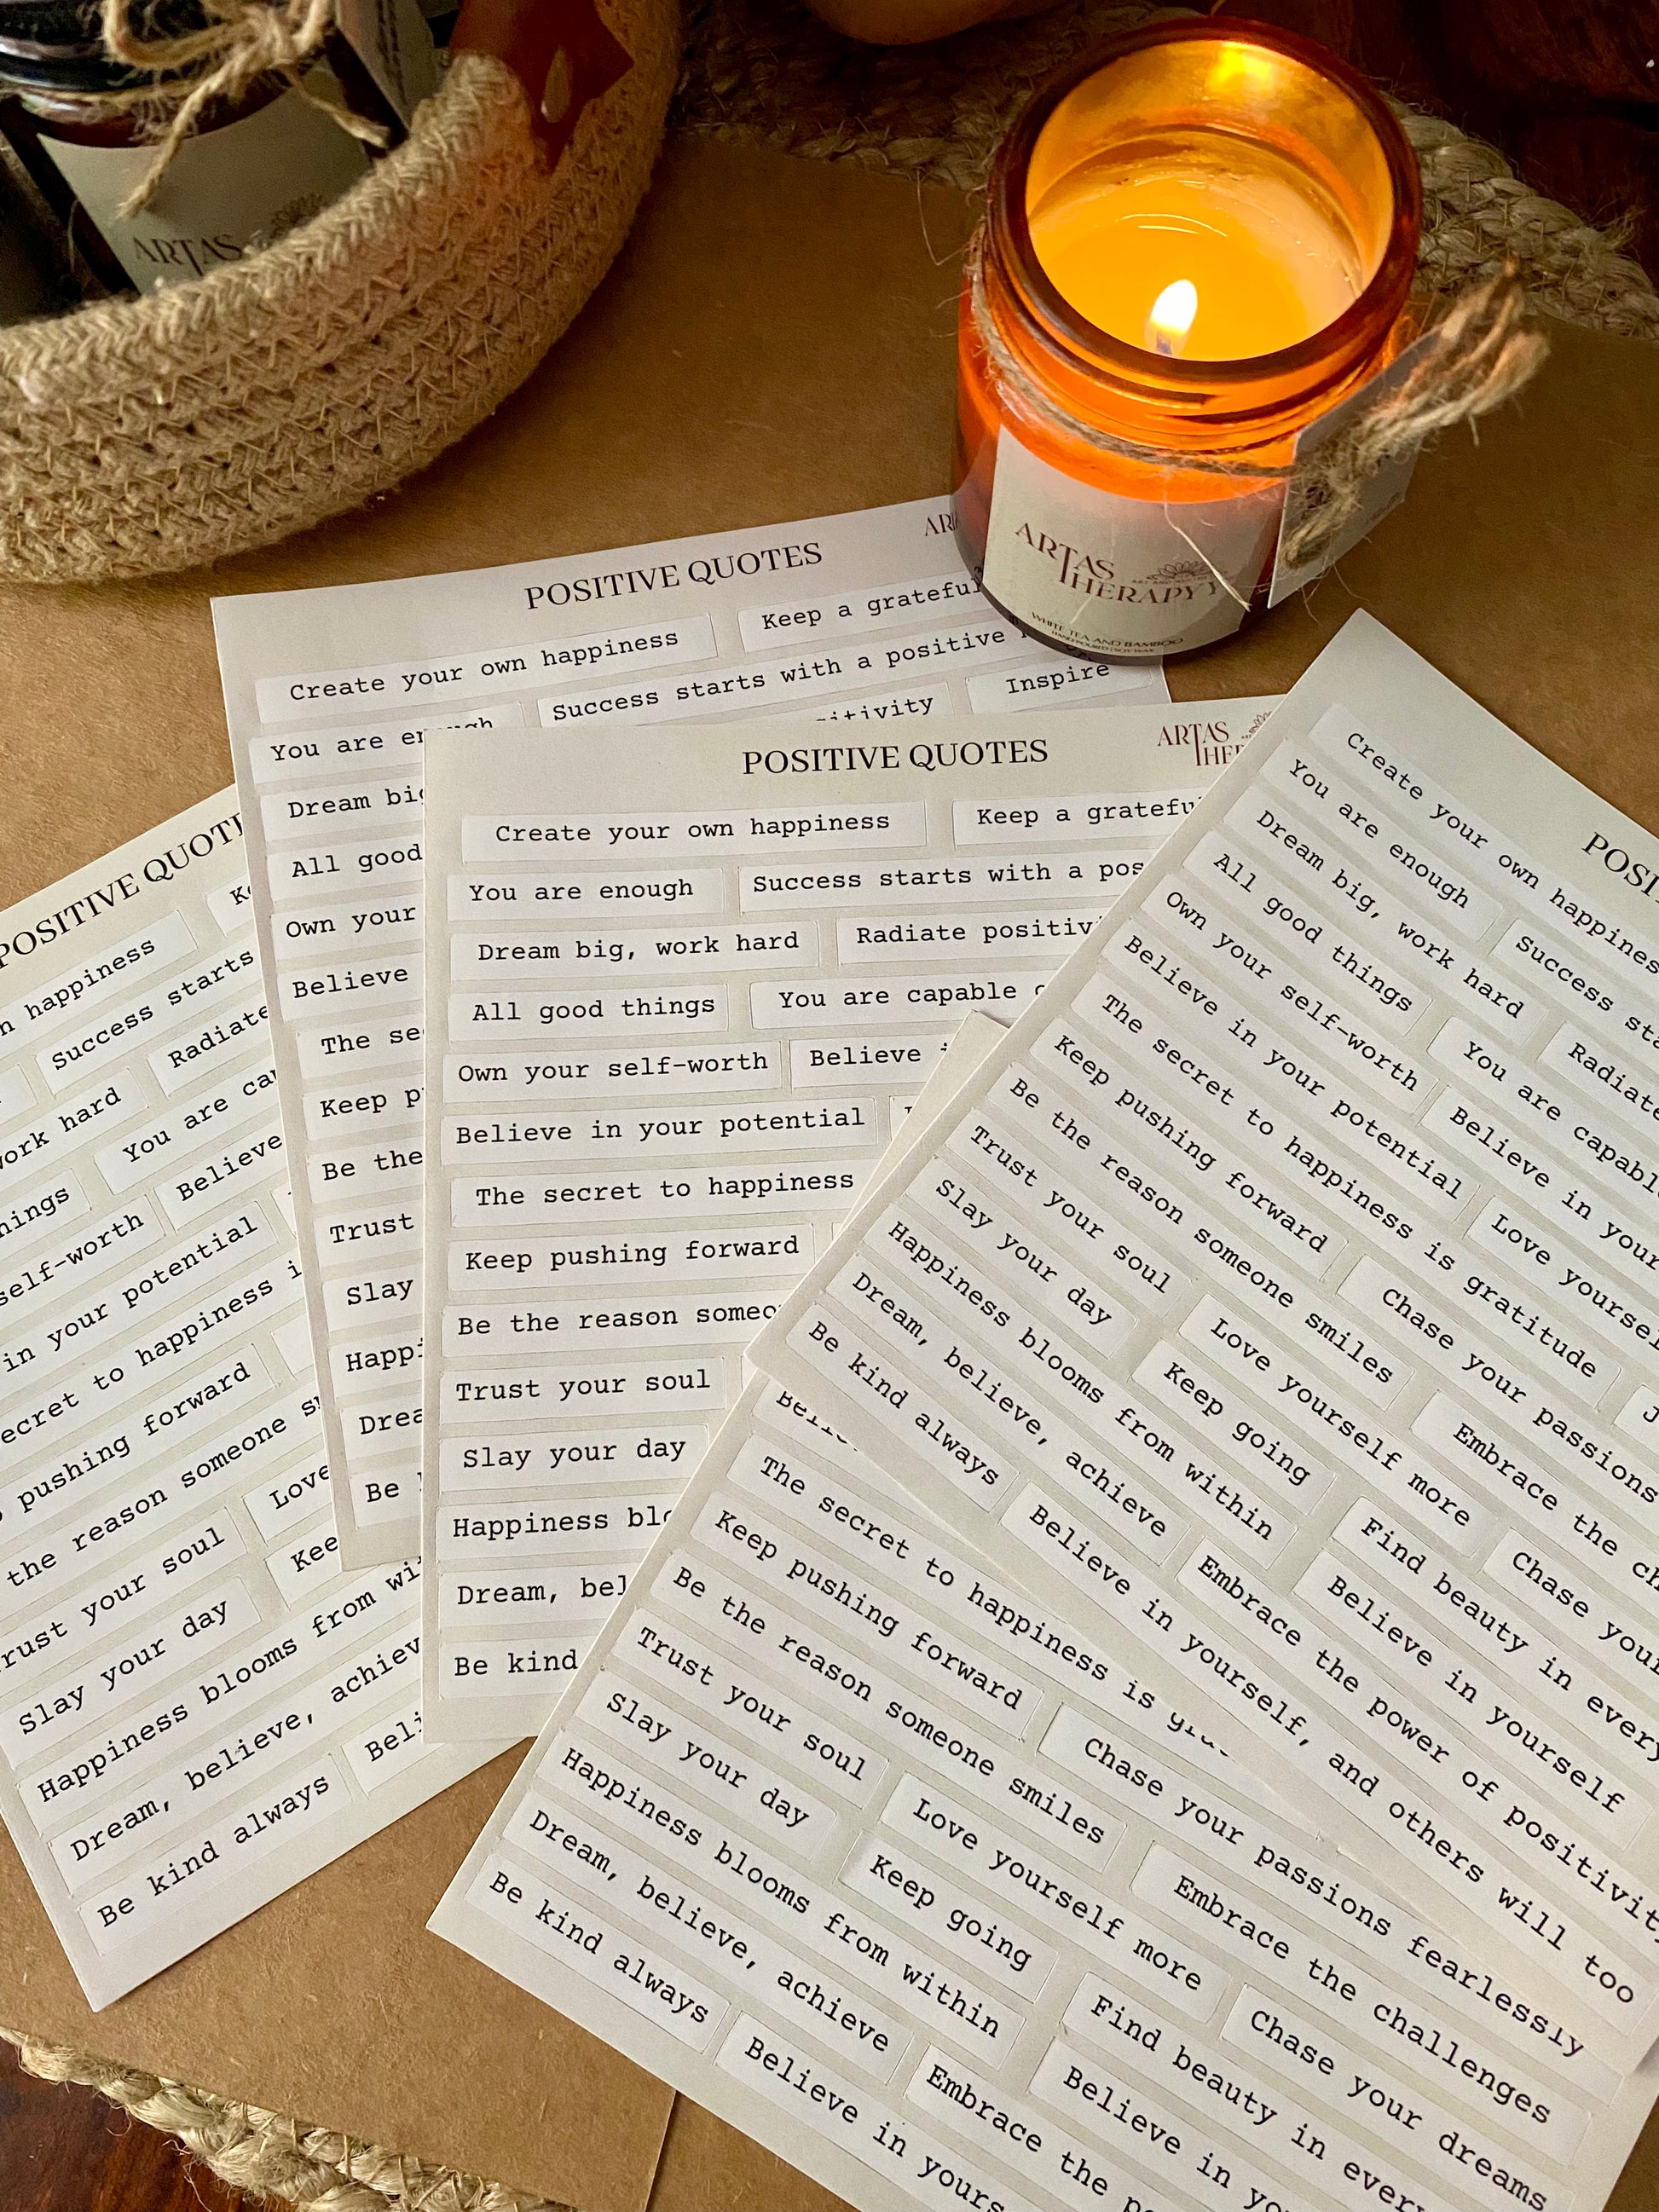 ARTAS
ARTAS
THERAPY
WHITE TEA AND BAMBOO
HAND POURED | SOY WAX
POSITIVE QUOTES
Create your own happiness Keep a grateful
You are enough Success starts with a positive
Inspire
Dream big
All good
Own your
Believe
The
Keep
Be the
Trust
Slay
Be
POSITIVE QUOTES
ARTAS
Create your own happiness Keep a grateful
You are enough Success starts with a
Dream big, work hard Radiate
All good things You are capable
Own your self-worth Believe
Believe in your potential
The secret to happiness
Keep pushing forward
Be the reason
Trust your soul
Slay your day
Happiness
Dream,
Be kind
POSITIVE
happiness
Success starts
work hard Radiate
You are
self-worth Believe
in your potential
to happiness
pushing forward
the reason someone
your soul Love
Slay your day
Happiness blooms from
Dream, believe,
Be kind always
Create your own happiness
You are enough Success
Dream big, work hard Radiate
All good things You are
Own your self-worth Believe in your
Believe in your potential Love
The secret to happiness is gratitude
Keep pushing forward Chase your passions
Be the reason someone smiles Embrace the
Trust your soul Love yourself more Chase
Slay your day Keep going Find beauty in
Happiness blooms from within Believe in yourself
Dream, believe, achieve Embrace the power of
Be kind always Believe in yourself, and others will too
The secret to happiness is
Keep pushing forward Chase your passions fearlessly
Be the reason someone smiles Embrace the challenges
Trust your soul Love yourself more Chase your dreams
Slay your day Keep going Find beauty in
Happiness blooms from within Believe in
Dream, believe, achieve Embrace the
Be kind always Believe in